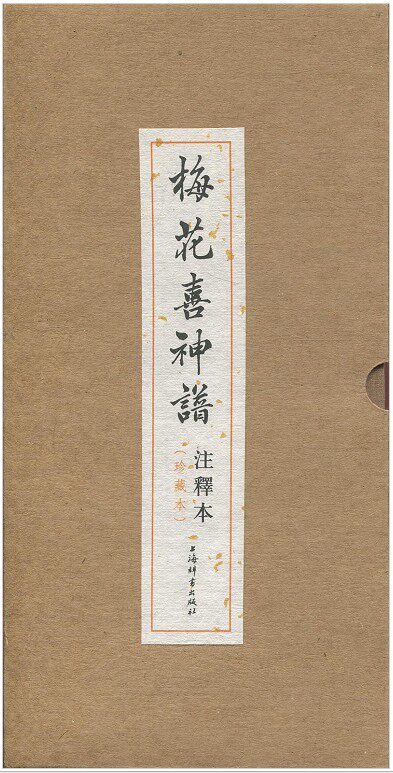 梅花喜神譜
注釋本
（珍藏本）
上海辞书出版社